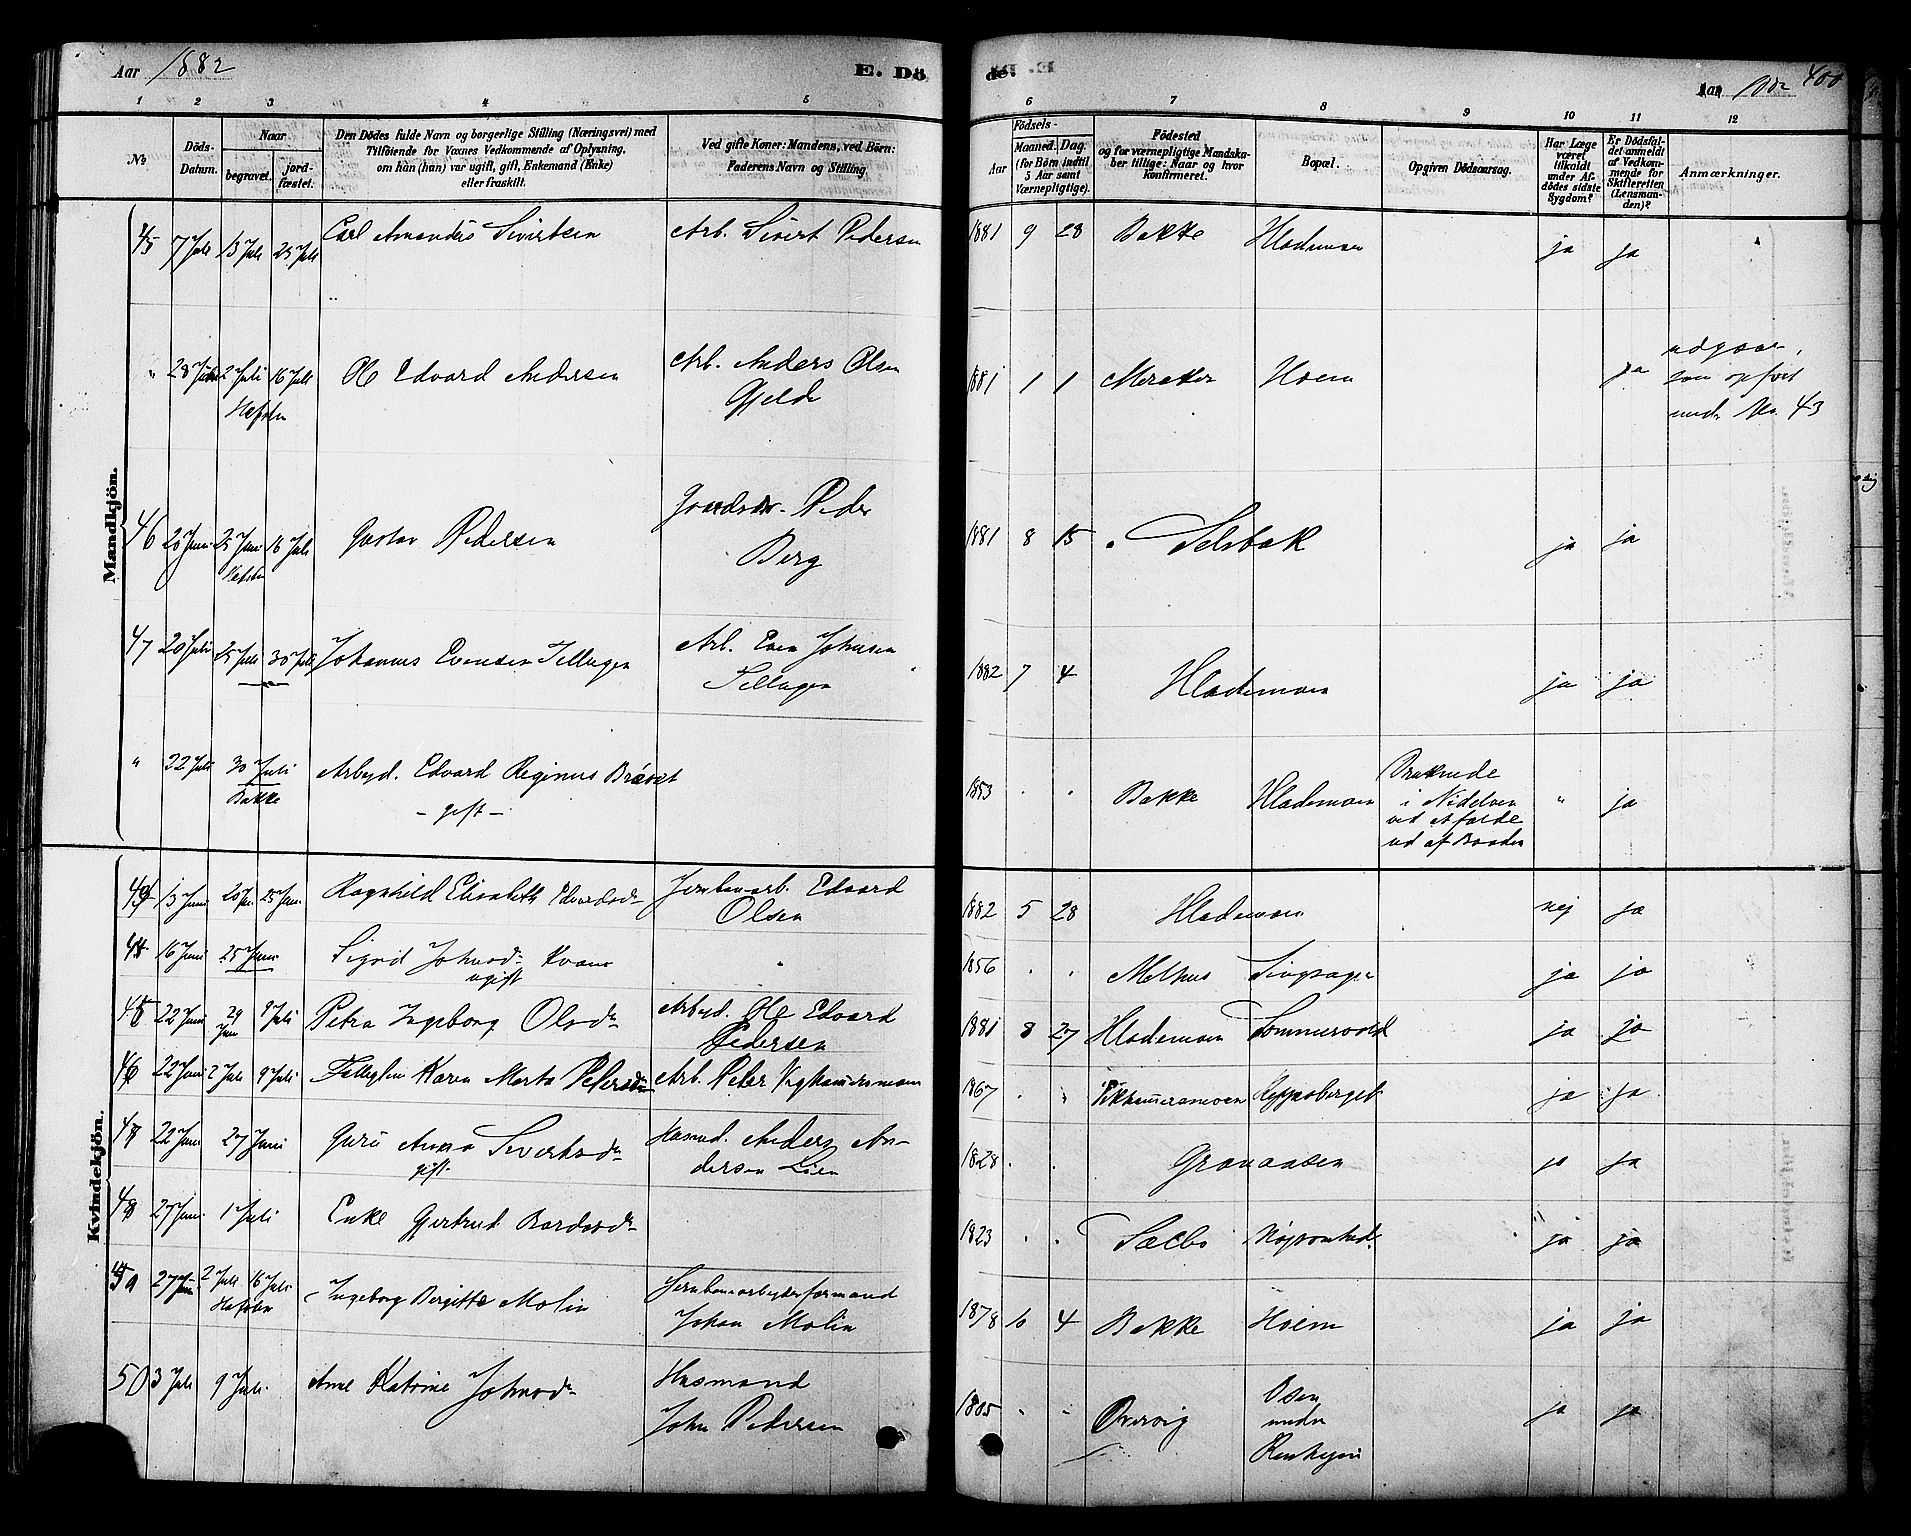 Aar 1882
E. Dö
de.
Aar 400
1 2 3 4 5 6 7 8 9 10 11 12
No
Döds-
Datum.
Naar
begravet.
jord-
fæstet.
Den Dödes fulde Navn og borgerlige Stilling (Næringsvei) med
Tilföiende for Voxnes Vedkommende af Oplysning,
om hun (han) var ugift, gift, Enkemand (Enke)
eller fraskilt.
Ved gifte Koner: Mandens, ved Börn:
Faderens Navn og Stilling.
Födsels-
Aar
Maaned. Dag.
(for Börn indtil
5 Aar samt
Værnepligtige).
Födested
og for værnepligtige Mandska-
ber tillige: Naar og hvor
Konfirmeret.
Bopæl.
Opgiven Dödsaarsag.
Har Læge
været
tilkaldt
under Af-
dödes sidste
Sygdom?
Er Dödsfal-
det anmeldt
af Vedkom-
mende for
Skifteretten
(Lensman-
den)?
Anmærkninger.
Mandkjön.
45 7 Juli 13 Juli 25 Juli Carl Amandus Sivertsen Arb. Sivert Pedersen 1881 9 28 Bakke Hlademoen ja ja
" 28 Juni 2 Juli 16 Juli Ole Edvard Andersen Arb. Anders Olsen 1881 1 1 Meraker Hoem ja udgaar,
Hafsten Gjelde som opført
under No. 43
46 20 Juni 25 Juni 16 Juli Gustav Pedersen Peder 1881 8 15 Selsbak ja ja
Hafsten Berg
47 20 Juli 25 Juli 30 Juli Johannes Evensen Tellugen Arb. Even Johnsen 1882 7 4 Hlademoen ja ja
Tellugen
" 22 Juli 30 Juli Arbejd. Edvard Reginus 1853 . . Bakke Hlademoen Druknede " ja
Bakke - gift - i Nidelven
ved at falde
ud af Baaden
Kvindekjön.
43 13 Juni 20 Ju. 25 Juni Ragnhild Elisabeth Edvardsd. Jernbanearb. Edvard 1882 5 28 Hlademoen nej ja
Olsen
44 16 Juni 25 Juni Sigrid Johnsd. 1856 . . Melhus Singsager ja ja
ugift
45 22 Juni 29 Juni 9 Juli Petra Ingeborg Olsd. Arbejd. Ole Edvard 1881 8 27 Hlademoen Sommervold ja ja
Pedersen
46 22 Juni 2 Juli 9 Juli Karen Marta Petersd. Arb. Peter 1867 . " ja ja
47 22 Juni 27 Juni Guru Anna Sivertsd. Husmd. Anders An- 1828 . . Granaasen ja ja
gift dersen Lien
48 27 Juni 1 Juli Enke Gjertrud Bardosd. 1823 . . Sælbo ja ja
27 Juni 2 Juli 16 Juli Ingeborg Birgitte Molin Jernbanearbejderformand 1878 10 4 Bakke Hoem ja ja
Hafsten Johan Molin
50 3 Juli 9 Juli Ane Katrine Johnsd. Husmand 1805 - - Overvig Osen ja ja
John Pedersen under